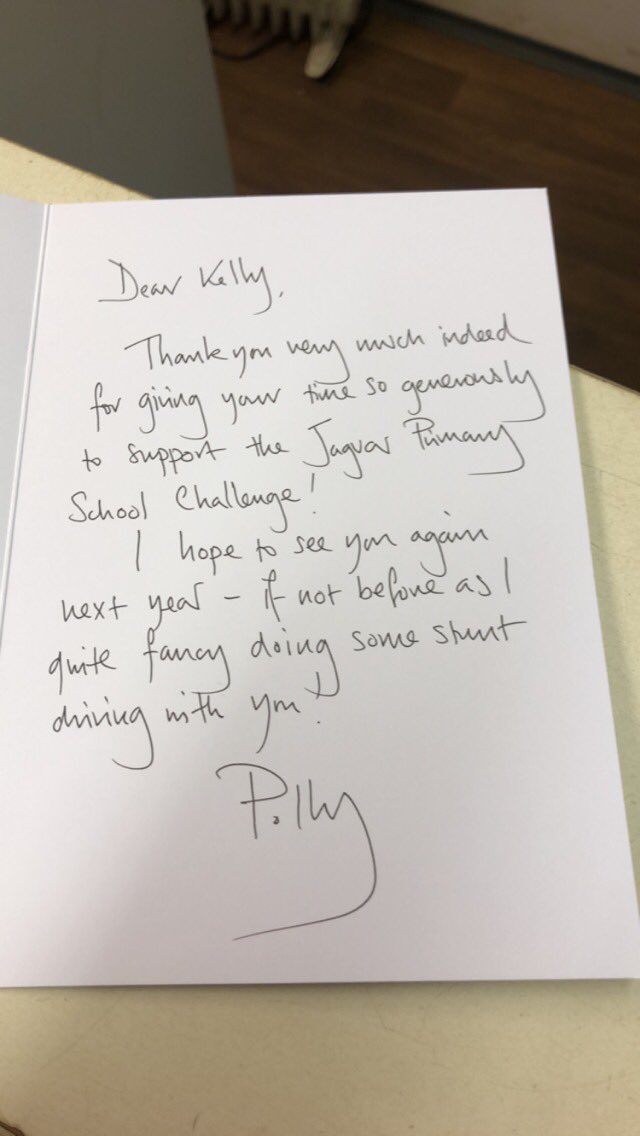 Dear Kelly,
Thank you very much indeed
for giving your time so generously
to support the Jaguar Primary
School Challenge!
I hope to see you again
next year - if not before as I
quite fancy doing some stunt
driving with you!
Polly